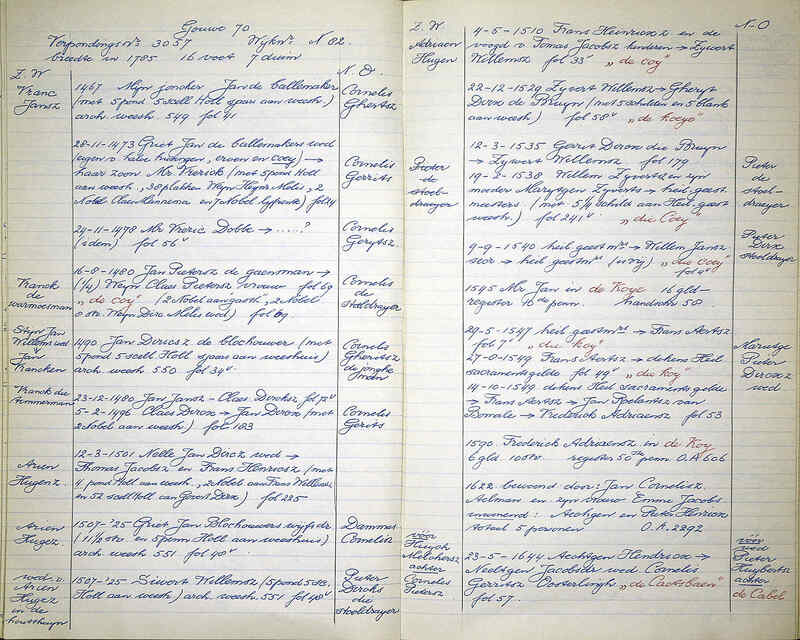 Gouwe 70
Verpondingsno. 3057 Wykno. N 82.
breedte in 1785 16 voet 7 duim
Z. W
N. O.
Vranc
Jansz
1467 Myn joncker Jan de ballemaker
(met 5 pond 5 scell Holl spaer aan weesh.)
arch. weesh 549 fol 41
Cornelis
Ghertsz
28-11-1473 Griet Jan de ballemakers wed
(eigen v hare huizingen, erven en coey) →
haar zoon Mr Vrerick (met 5 pond Holl
aan weesh, 30 plakken Weyn Heyn Meles, 2
Cornelis
Gerrits
24-11-1478 Mr Vreric Dobbe → .....?
(idem) fol 56v
Cornelis
Gerytsz
Franck
de
warmoesman
16-8-1480 Jan Pietersz de gaensman →
(1/4) Weyn Claes Pietersz vrouw fol 69
„de coy" (2 Nobel aan gasth, 2 Nobel
0 sto. Weyn Dirc Meles wed) fol 69
Cornelis
de
stoeldrayer
Styn Jan
Willems wed
Jan
Francken
1490 Jan Dircsz de blochouwer (met
5 pond 5 scell Holl spaar aan weeshuis)
arch. weesh 550 fol 34v
Cornelis
Gheritsz
de jonghe
man
Vranck die
timmerman
23-12-1480 Jan Jansz - Claes Dircksz fol 72v
5-2-1496 Claes Dircxz → Jan Dircxz (met
2 Nobel aan weesh) fol 183
Cornelis
Gerrits
Arien
Hugenz
12-3-1501 Nelle Jan Dircz wed →
Thomas Jacobsz en Frans Henricxz (met
4 pond Holl aan weesh, 2 Nobel aan Frans Willemsz
en 52 scell Holl van Govert Dircxz) fol 225
Arien
Hugez
1507-'25 Griet Jan Blochouwers wyf is dr
(11 1/2 sto. en 5 penn Holl aan weeshuis)
arch. weesh 551 fol 40v
Dammas
Cornelis
wed. v.
Arien
Hugez
in de
houtscheyn
1507-'25 Siwert Willemsz (5 pond 5 sc.
Holl aan weesh) arch. weesh. 551 fol 40v
Pieter
Dircks
die
stoeldrayer
Z. W
N-O
Adriaen
Hugen
4-5-1510 Frans Heinricxz en de
voogd v Tomas Jacobsz kinderen → Zywert
Willemsz fol 33v „de coy"
22-12-1529 Zyvert Willemsz → Gheryt
Dircx de Bruyn (met 5 schilden en 5 blank
aan weesh) fol 58v „de koeye"
Pieter
de
stoel-
draeyer
12-3-1535 Gerrit Dircxz die Bruyn
→ Zywert Willemsz fol 179
19-2-1538 Willem Zyvertsz en zyn
moeder Marytgen Zyverts → heil. geest
meesters (met 5 1/4 schilds aan Heil. geest
weesh.) fol 241v „die Coey"
Pieter
de
stoel-
draeyer
9-9-1540 heil geestmrs → Willem Jansz
stor → heil geestmrs (1/2 vry) „die coey"
Pieter
Dircx
Stoeldrayer
1545 Mr Jan in de Koye 16 gld-
register 10de penn. handschr 50
29-5-1547 heil geestmrs → Frans Aertsz
fol 7v „die koy"
27-8-1549 Frans Aertsz → dekens Heil
sacramentsgilde fol 49v „die koy"
14-10-1549 dekens Heil sacramentsgilde
→ Frans Aertsz → Jan Roelantsz van
Bomale → Frederick Adriaensz fol 53
Marritge
Pieter
Dircxz
wed
1590 Frederick Adriaensz in de Koy
6 gld 10 sto. register 50ste penn. O.A 606
1622 bewoond door: Jan Cornelisz.
Aelman en zyn vrouw Emme Jacobs
inwonend: Aechgen en Pieter Henricxz
totaal 5 personen O.A. 2292
vóór
Huych
Melchersz
achter
Cornelis
Pietersz
23-5-1644 Aechtgen Hendricxz →
Neeltgen Jacobsdr wed Cornelis
Gerritsz Oosterlingh „de Caetsbaen"
fol 57.
vóór
wed
Pieter
Huybertsz
achter
de Cabel